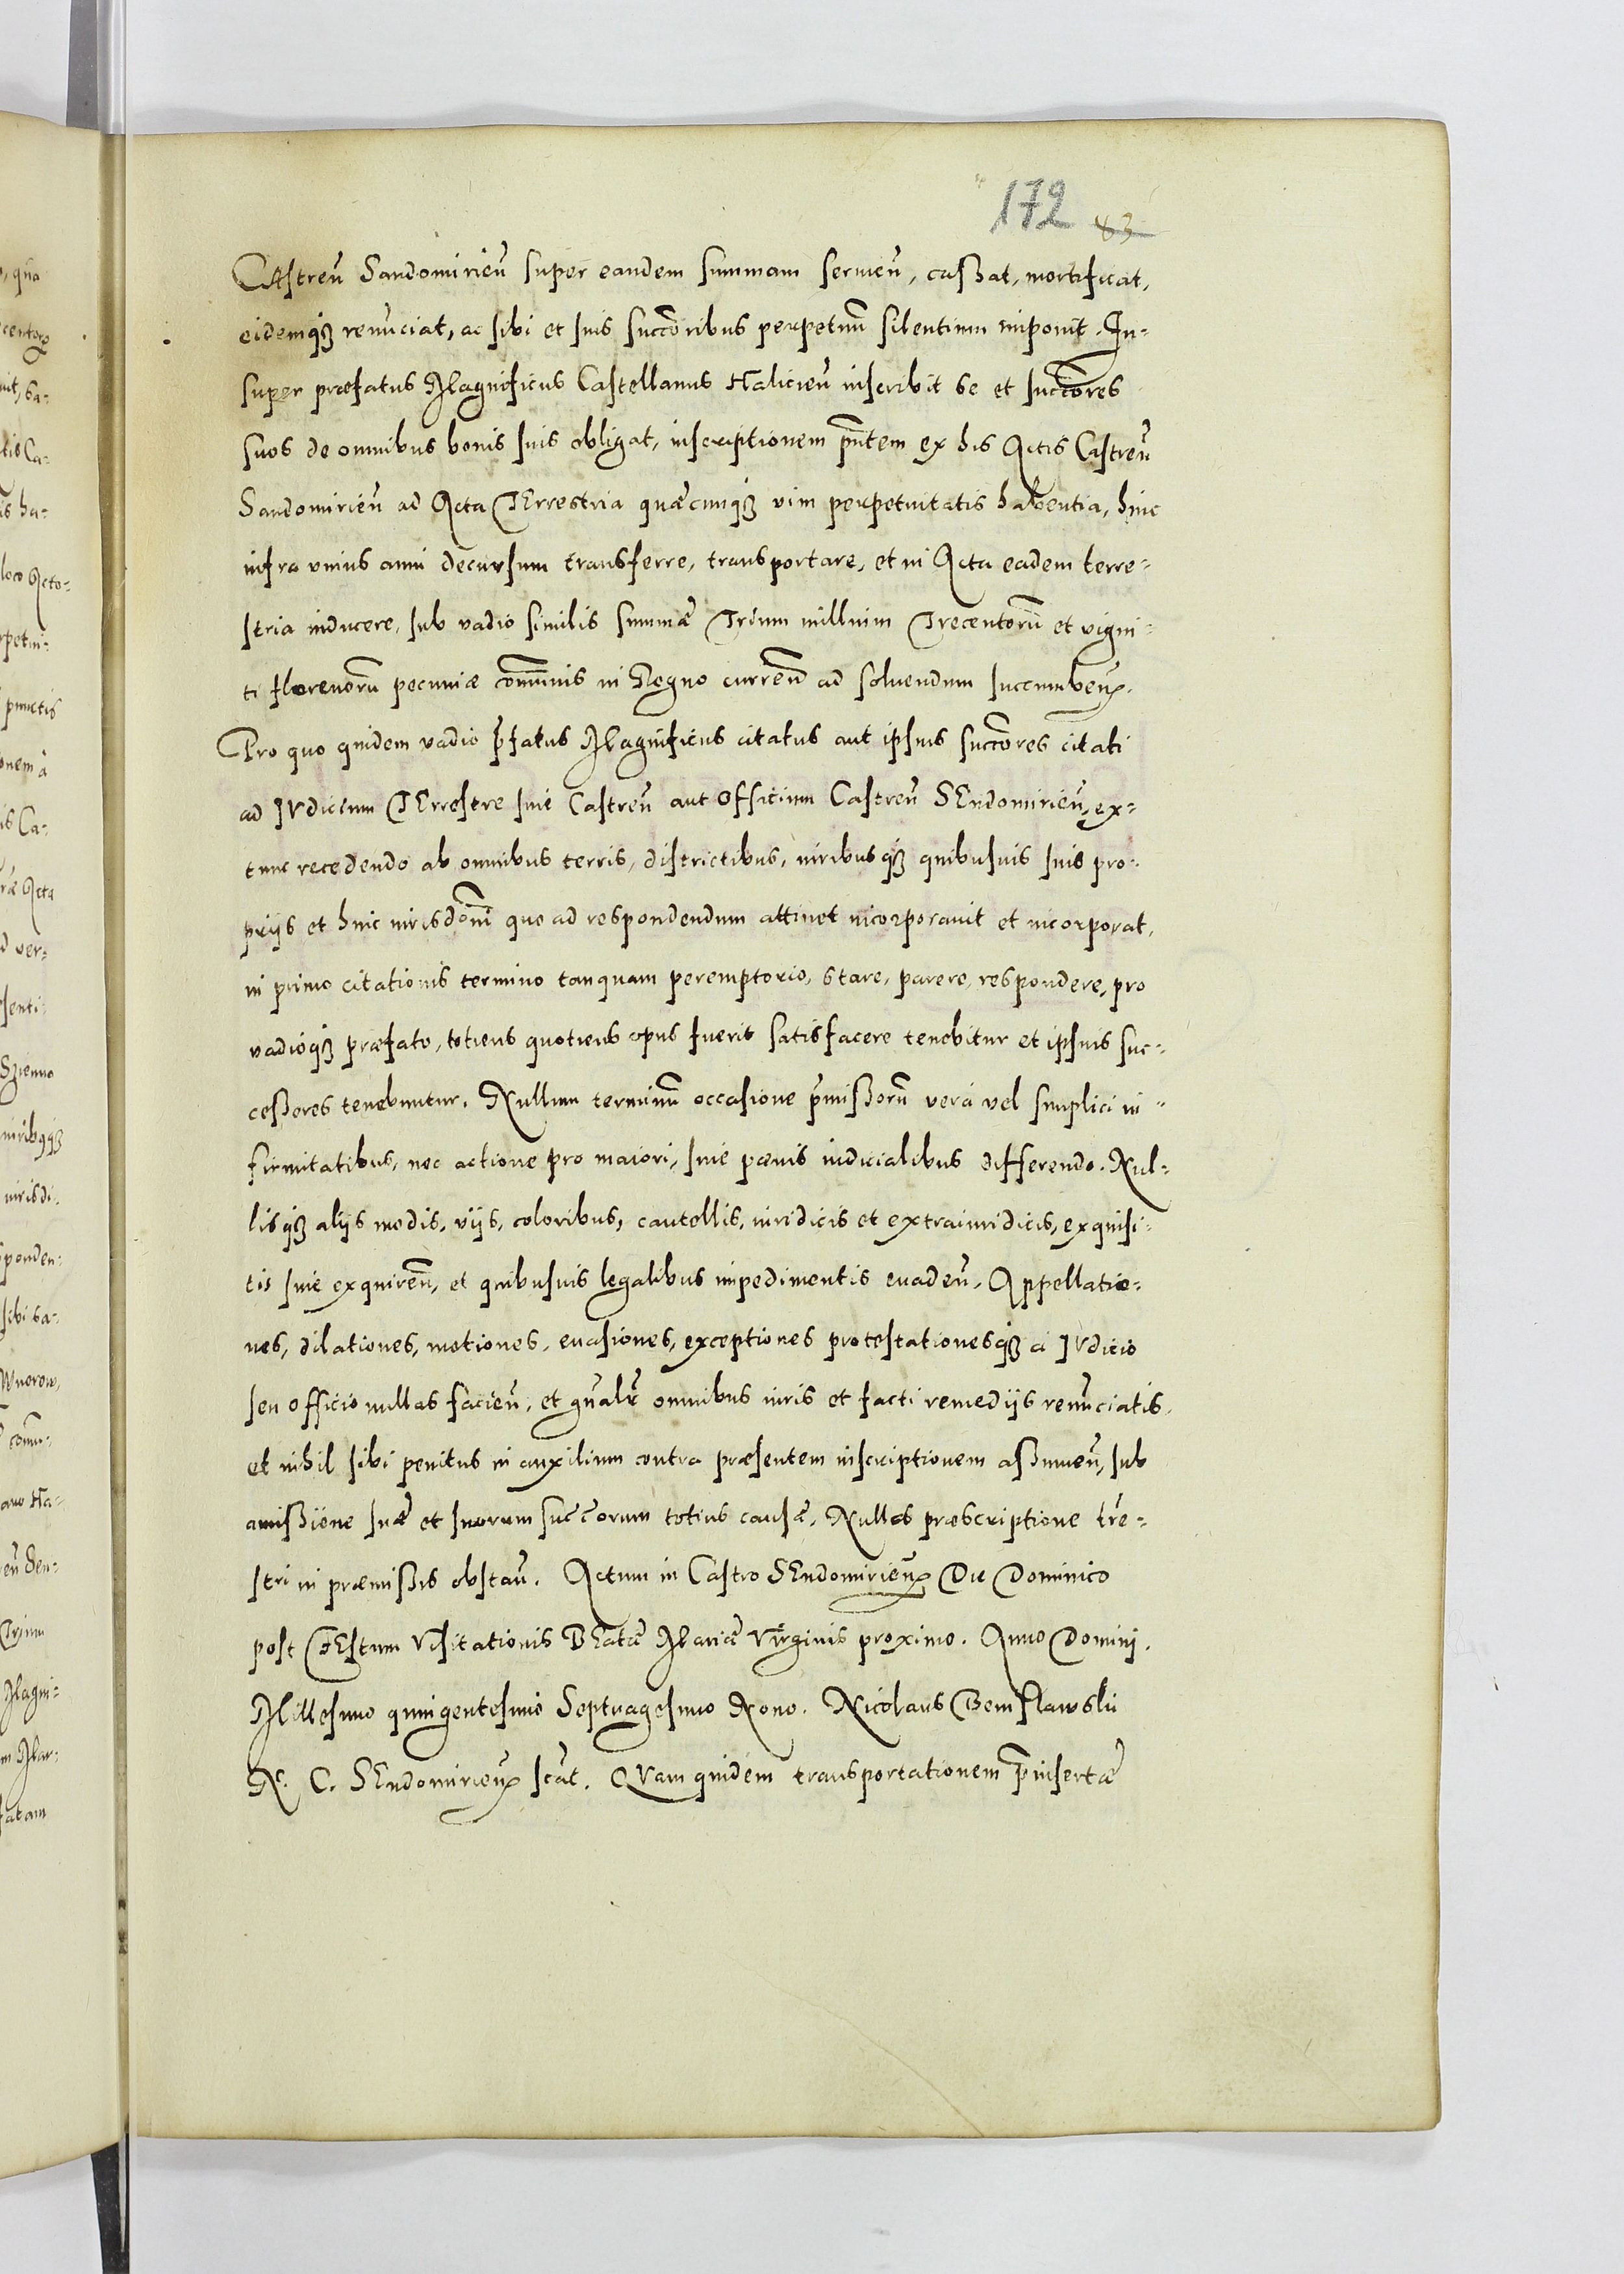 172 83
CAstreñ Sandomirieñ super eandem summam servieñ, cassat, mortificat,
eidemq3 renũciat, ac sibi et suis succõribus perpetuũ silentium imponit. In-
super præfatus Magnificus Castellanus Halicieñ inscribit se et succõres
suos de omnibus bonis suis obligat, inscriptionem p̃ntem ex his Actis Castreñ
Sandomirieñ ad Acta TErrestria quæcunq3 vim perpetuitatis habentia, hinc
infra vnius anni decursum transferre, transportare, et in Acta eadem terre-
stria inducere, sub vadio similis summæ Trium millium Trecentorũ et vigin-
ti florenorũ pecuniæ com̃unis in Regno curreñ ad soluendum succumbeñ.
Pro quo quidem vadio p̃fatus Magnificus citatus aut ipsius succõres citati
ad IVdicium TErrestre siue Castreñ aut Officium Castreñ SEndomirieñ, ex-
tunc recedendo ab omnibus terris, districtibus, iuribusq3 quibusuis suis pro-
prijs et huic iurisdõni quo ad respondendum attinet incorporauit et incorporat,
in primo citationis termino tanquam peremptorio, stare, parere, respondere, pro
vadioq3 præfato, totiens quotiens opus fuerit satisfacere tenebitur et ipsius suc-
cessores tenebuntur. Nullum terminũ occasione p̃missorũ vera vel simplici in-
firmitatibus, nec actione pro maiori, siue pœnis iudicialibus differendo. Nul-
lisq3 alijs modis, vijs, coloribus, cautellis, iuridicis et extraiuridicis, exquisi-
tis siue exquireñ, et quibusuis legalibus impedimentis euadeñ. Appellatio-
nes, dilationes, motiones, euasiones, exceptiones protestationesq3 a IVdicio
seu officio nullas facieñ, et gñalr̃ omnibus iuris et facti remedijs renũciatis,
et nihil sibi penitus in auxilium contra præsentem inscriptionem assumeñ, sub
amissione suæ et suorum succ̃orum totius causæ, Nulla præscriptione tr̃e-
stri in præmissis obstañ. Actum in Castro SEndomirieñ Die Dominico
post FEstum Visitationis BEatæ Mariæ Virginis proximo. Anno Domini.
Millesimo quingentesimo Septuagesimo Nono. Nicolaus Dembiawski
N. C. SEndomirieñ scãt. QVam quidem transportationem p̃insertæ